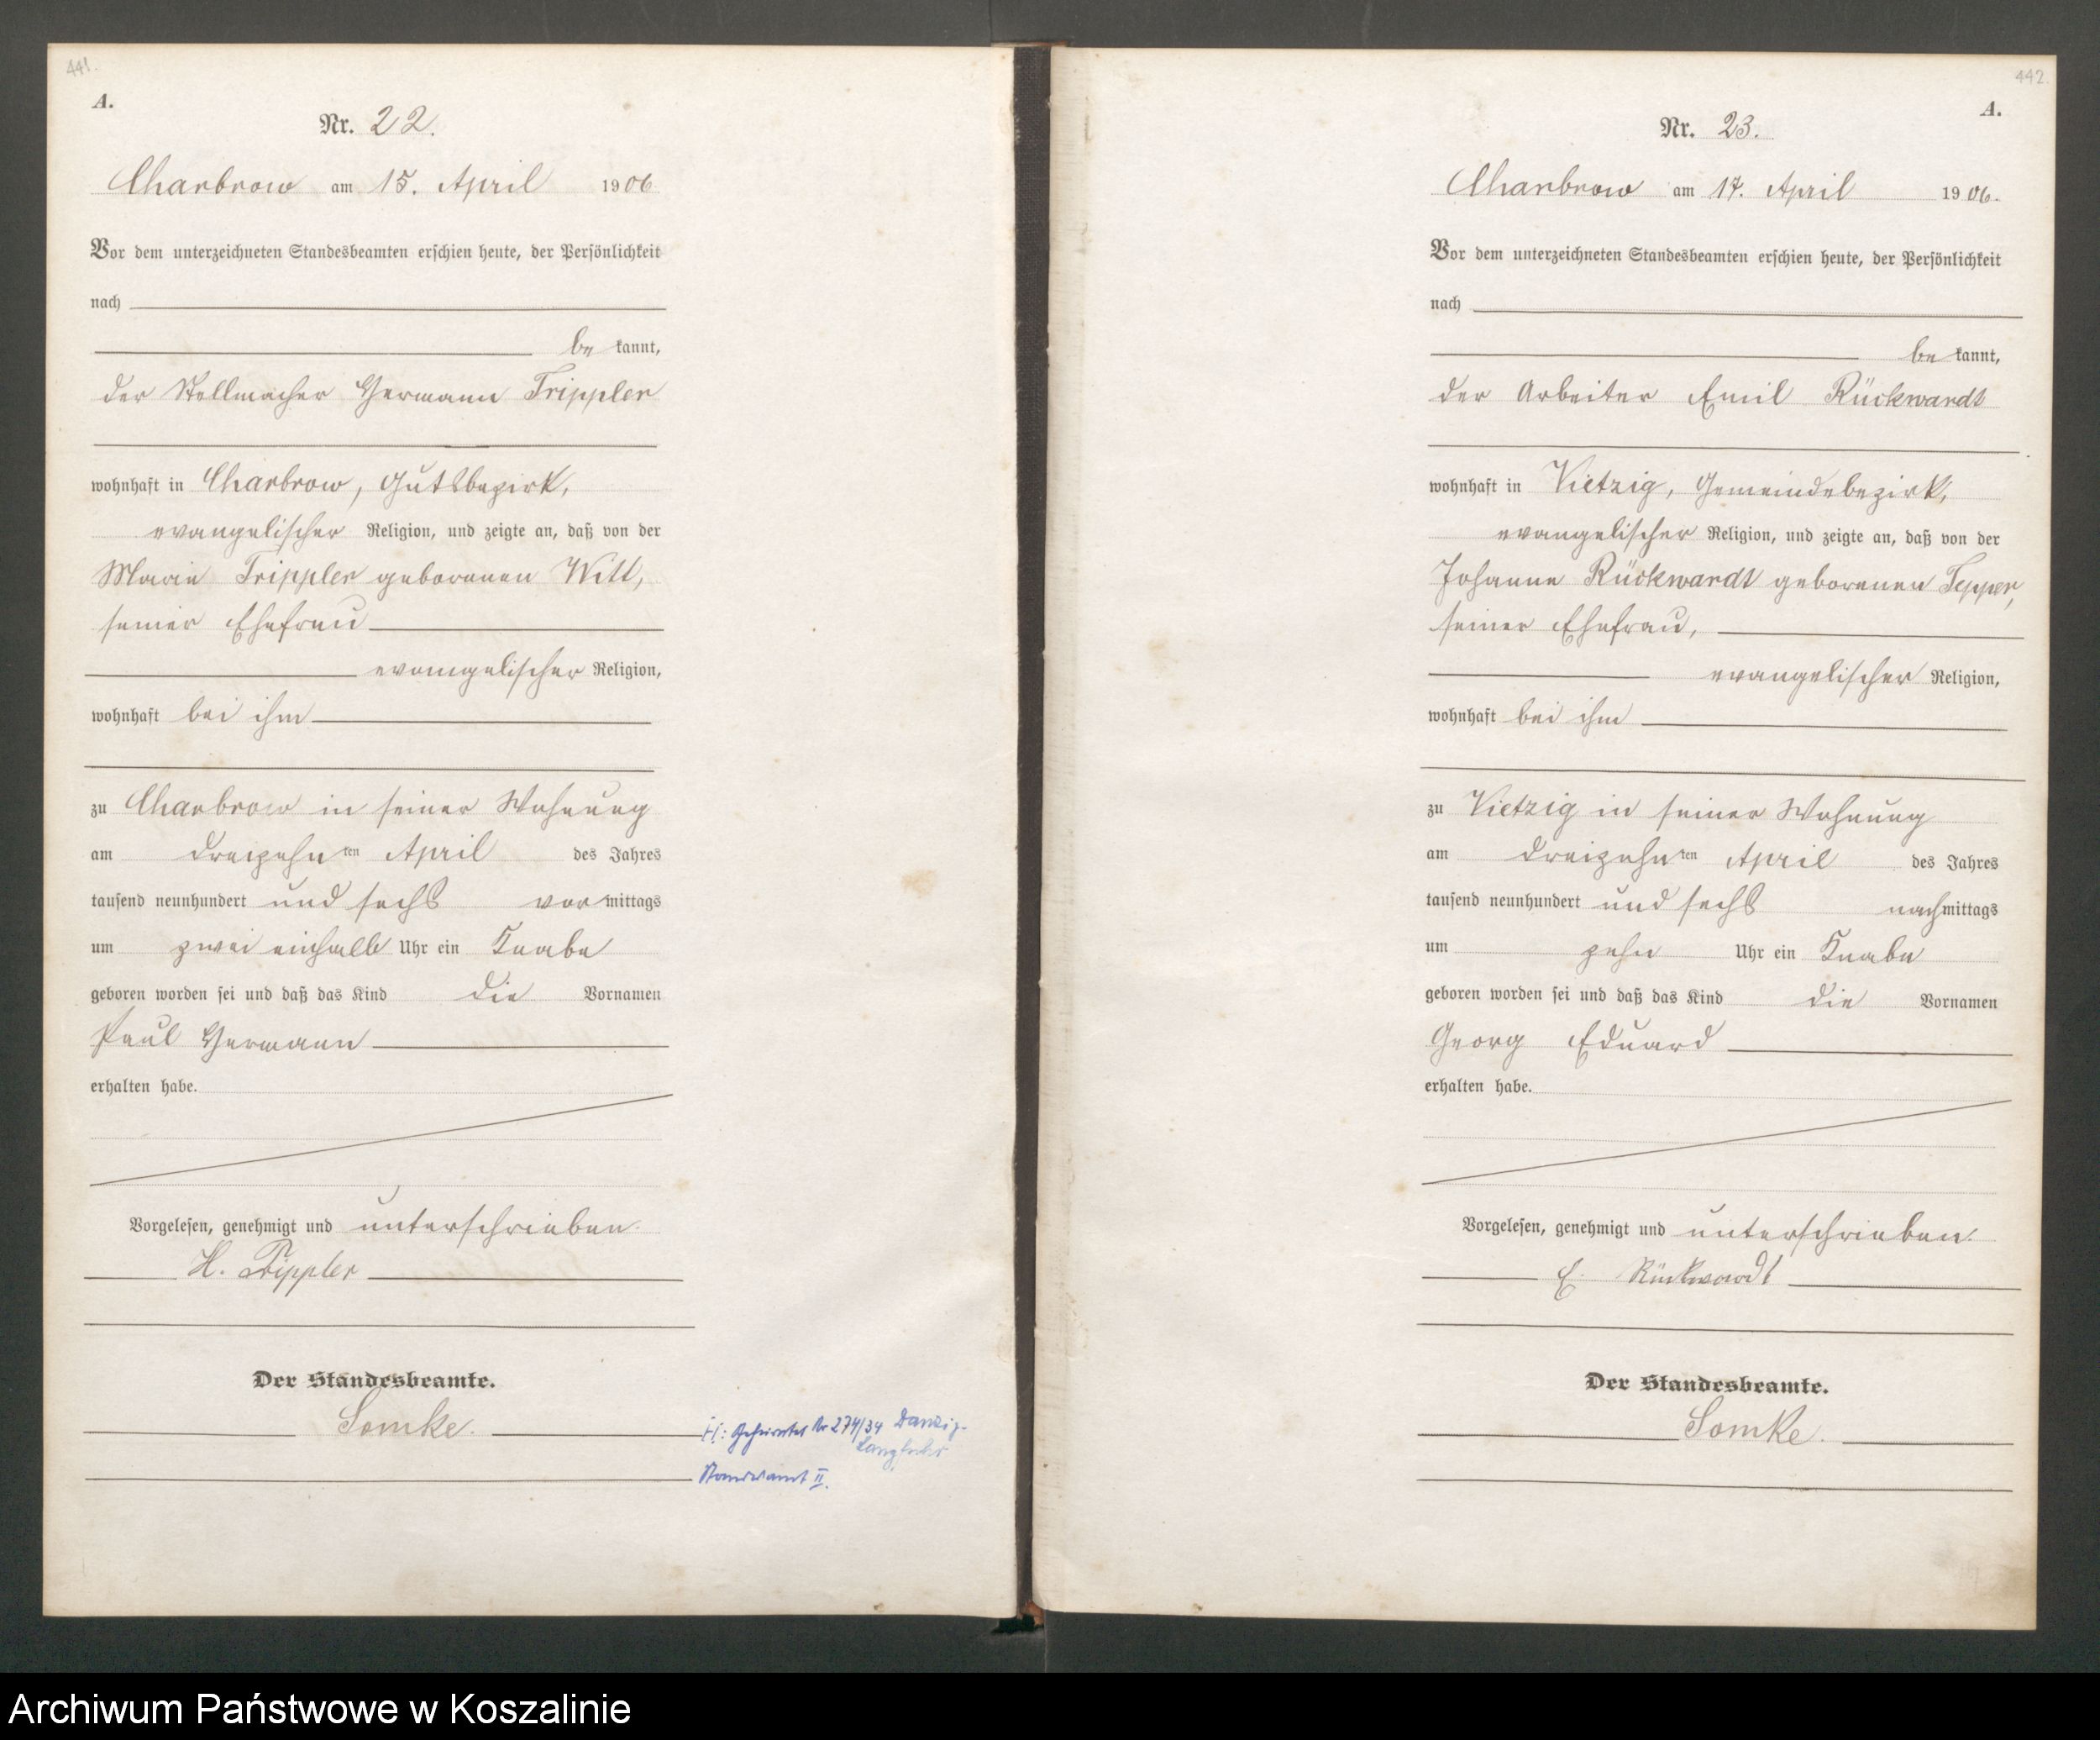 441.
A.
Nr. 22.
Charbrow am 15. April 1906
Vor dem unterzeichneten Standesbeamten erschien heute, der Persönlichkeit
nach
be kannt,
der Stellmacher Hermann Trippler
wohnhaft in Charbrow, Gutsbezirk,
evangelischer Religion, und zeigte an, daß von der
Marie Trippler geborenen Witt,
seiner Ehefrau
evangelischer Religion,
wohnhaft bei ihm
zu Charbrow in seiner Wohnung
am dreizehn ten April des Jahres
tausend neunhundert und sechs vor mittags
um zwei einhalb Uhr ein Knabe
geboren worden sei und daß das Kind die Vornamen
Paul Hermann
erhalten habe.
Vorgelesen, genehmigt und unterschrieben.
H. Trippler
Der Standesbeamte.
Somke.
H: Geheiratet Nr 274/34 Danzig-
Langfuhr
Standesamt II.
442.
A.
Nr. 23.
Charbrow am 17. April 1906.
Vor dem unterzeichneten Standesbeamten erschien heute, der Persönlichkeit
nach
be kannt,
der Arbeiter Emil Rückwardt
wohnhaft in Vietzig, Gemeindebezirk,
evangelischer Religion, und zeigte an, daß von der
Johanne Rückwardt geborenen Tepper,
seiner Ehefrau,
evangelischer Religion,
wohnhaft bei ihm
zu Vietzig in seiner Wohnung
am dreizehn ten April des Jahres
tausend neunhundert und sechs nachmittags
um zehn Uhr ein Knabe
geboren worden sei und daß das Kind die Vornamen
Georg Eduard
erhalten habe.
Vorgelesen, genehmigt und unterschrieben.
E. Rückwardt
Der Standesbeamte.
Somke.
Archiwum Państwowe w Koszalinie